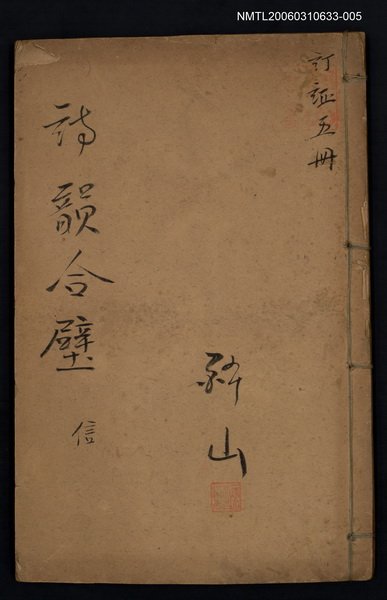 NMTL20060310633-005
訂証五冊
山
詩韻合璧
信